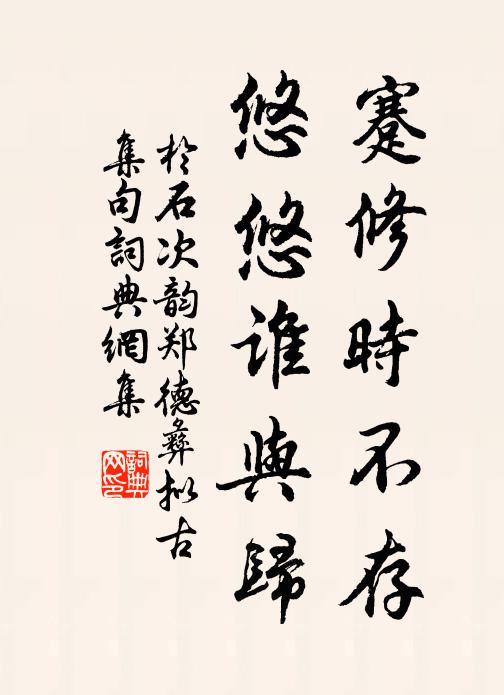 蹇修時不存
悠悠誰與歸
於石次韵郑德彝拟古
集句詞典網集
詞典
网印